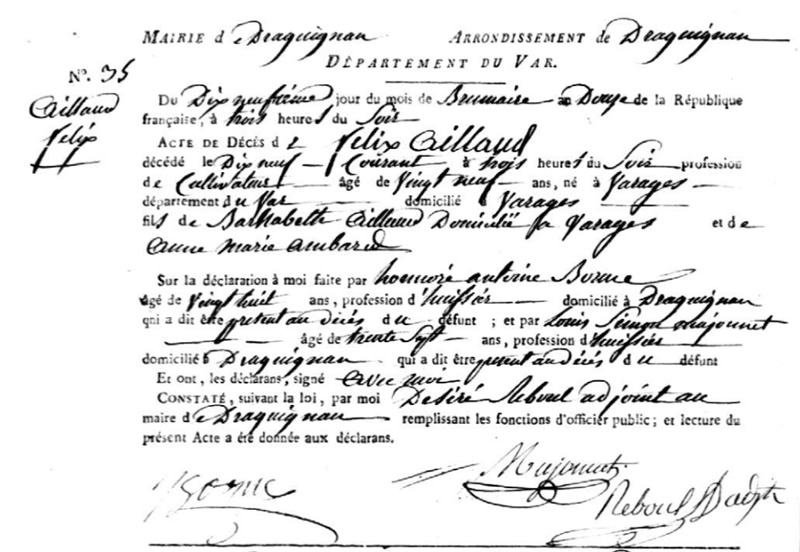 MAIRIE de Draguignan ARRONDISSEMENT de Draguignan
DÉPARTEMENT DU VAR.
N°. 35
Caillaud
Felix
Du Dix neufième jour du mois de Brumaire an Douze de la République
française, à trois heures du Soir
ACTE DE DÉCÈS de Felix Caillaud
décédé le Dix neuf Courant à trois heures du Soir profession
de Cultivateur âgé de Vingt neuf ans, né à Varages
département du Var domicilié Varages
fils de Caillaud Domicilié a Varages et de
Anne Marie
Sur la déclaration à moi faite par honnoré antoine Borme
âgé de Vingt huit ans, profession d'huissier domicilié à Draguignan
qui a dit être présent au décés du défunt ; et par Louis Simon majonnet
âgé de trente Sept ans, profession d'huissier
domicilié à Draguignan qui a dit être présent au décés du défunt
Et ont, les déclarans, signé avec moi
CONSTATÉ, suivant la loi, par moi Desiré Reboul adjoint au
maire de Draguignan remplissant les fonctions d'officier public ; et lecture du
présent Acte a été donnée aux déclarans.
Borme Majonnet
Reboul D adjt